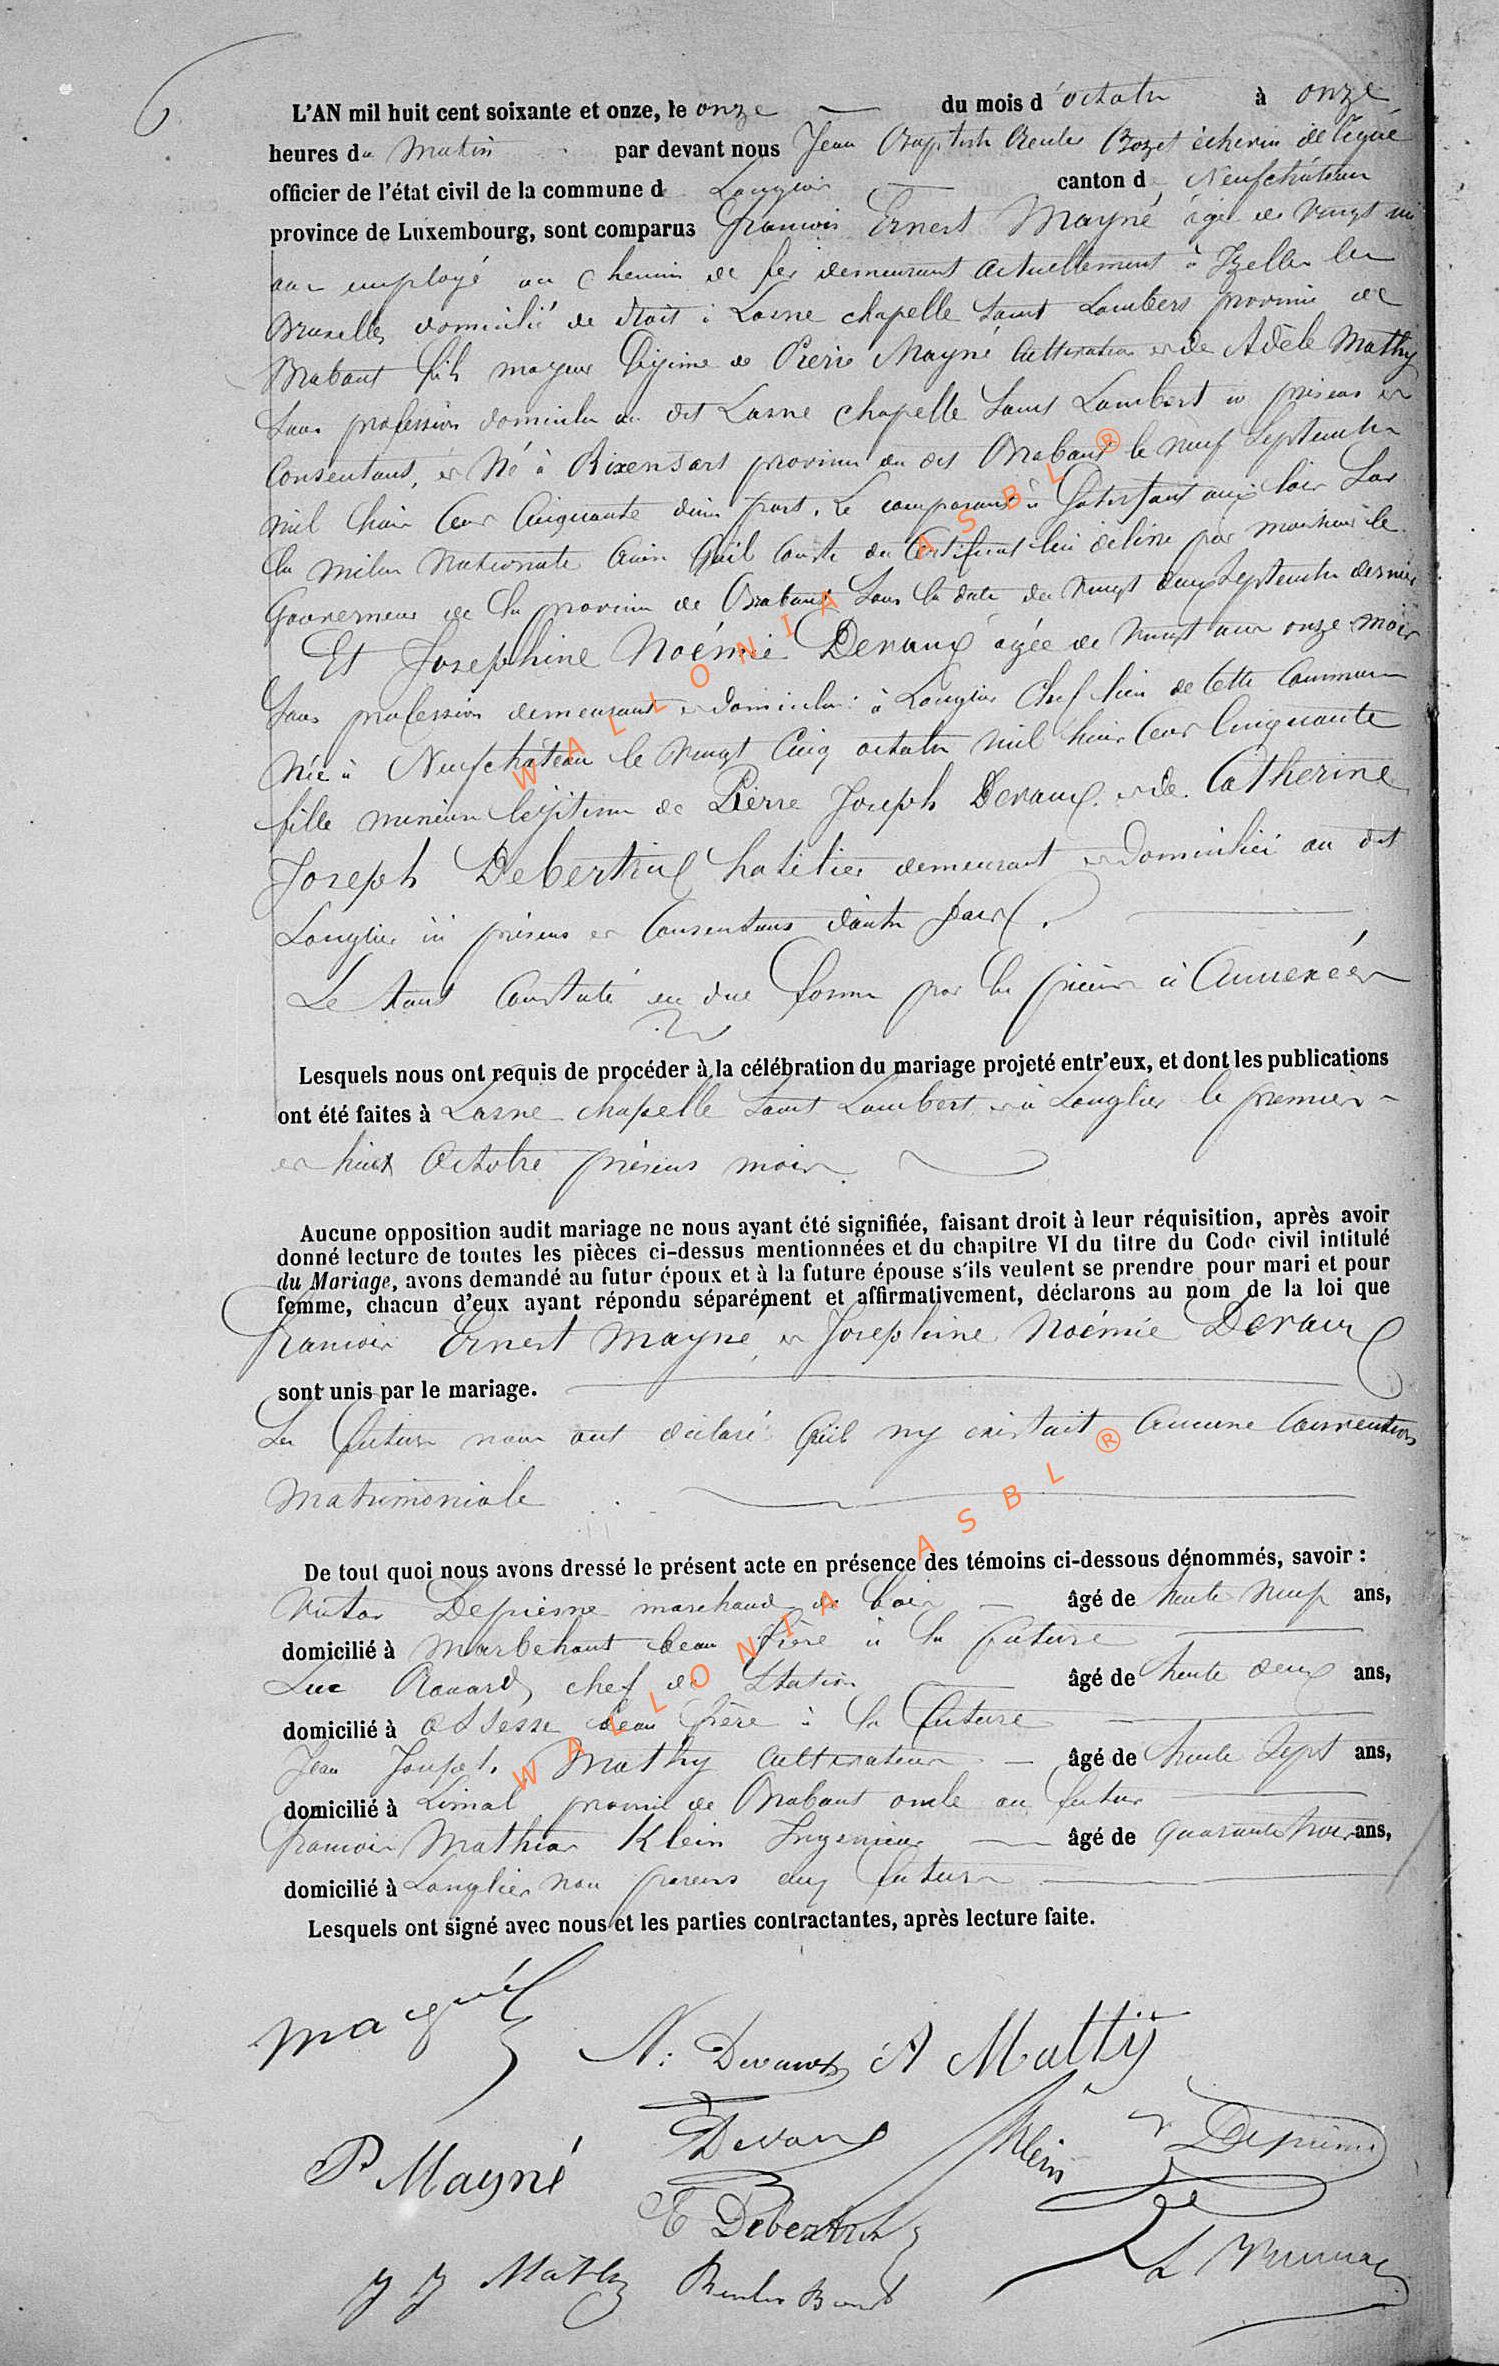 6
L'AN mil huit cent soixante et onze, le onze du mois d'octobre à onze
heures du Matin par devant nous Jean Baptiste Reuler Bozet échevin délégué
officier de l'état civil de la commune d Longlier canton d Neufchâteau
province de Luxembourg, sont comparus François Ernest Mayné âgé de vingt un
ans employé au chemin de fer demeurant actuellement à Ixelles lez
Bruxelles domicilié de droit à Lasne chapelle Saint Lambert province de
Brabant fils majeur légitime de Pierre Mayné cultivateur et de Adèle Mathy
Sans profession domiciliés au dit Lasne chapelle Saint Lambert ici présens et
Consentans, et Né à Rixensart province du dit Brabant le neuf Septembre
mil huit Cent Cinquante d'une part. Le comparant a Satisfait aux lois Sur
la milice Nationale Ainsi Qu'il Conste du Certificat lui délivré par monsieur le
Gouverneur de la province de Brabant Sous la date du vingt deux Septembre dernier
Et Josephine Noémie Devaux âgée de vingt ans onze mois
Sans profession demeurant et domiciliée à Longlier Chef lieu de Cette Commune
Née à Neufchâteau le vingt Cinq octobre mil huit Cent Cinquante
fille mineure légitime de Pierre Joseph Devaux et de Catherine
Joseph Debertrix hotelier demeurant et domiciliés au dit
Longlier ici présens et Consentans d'autre part.
Le tout Constaté en due forme par les pièces ci Annexées
Lesquels nous ont requis de procéder à la célébration du mariage projeté entr'eux, et dont les publications
ont été faites à Lasne chapelle Saint Lambert et à Longlier le premier
et huit Octobre présens mois
Aucune opposition audit mariage ne nous ayant été signifiée, faisant droit à leur réquisition, après avoir
donné lecture de toutes les pièces ci-dessus mentionnées et du chapitre VI du titre du Code civil intitulé
du Mariage, avons demandé au futur époux et à la future épouse s'ils veulent se prendre pour mari et pour
femme, chacun d'eux ayant répondu séparément et affirmativement, déclarons au nom de la loi que
François Ernest Mayné, et Josephine Noémie Devaux
sont unis par le mariage.
Les futurs nous ont déclaré Qu'il ny existait Aucune Convention
Matrimoniale
De tout quoi nous avons dressé le présent acte en présence des témoins ci-dessous dénommés, savoir :
Victor Depiesne marchand de bois âgé de trente neuf ans,
domicilié à Marbehant beau frère à la future
Luc chef de Station âgé de trente deux ans,
domicilié à Assesse beau frère à la future
Jean Joseph Mathy Cultivateur âgé de trente Sept ans,
domicilié à Limal province de Brabant oncle au futur
François Mathias Klein Ingenieur âgé de quarante trois ans,
domicilié à Longlier non parens aux futurs
Lesquels ont signé avec nous et les parties contractantes, après lecture faite.
Mayné
N. Devaux A Mathÿ
Devaux Klein V Depiesne
P. Mayné
C Debertrix
J J Mathy
WALLONIA ASBL ®
WALLONIA ASBL ®